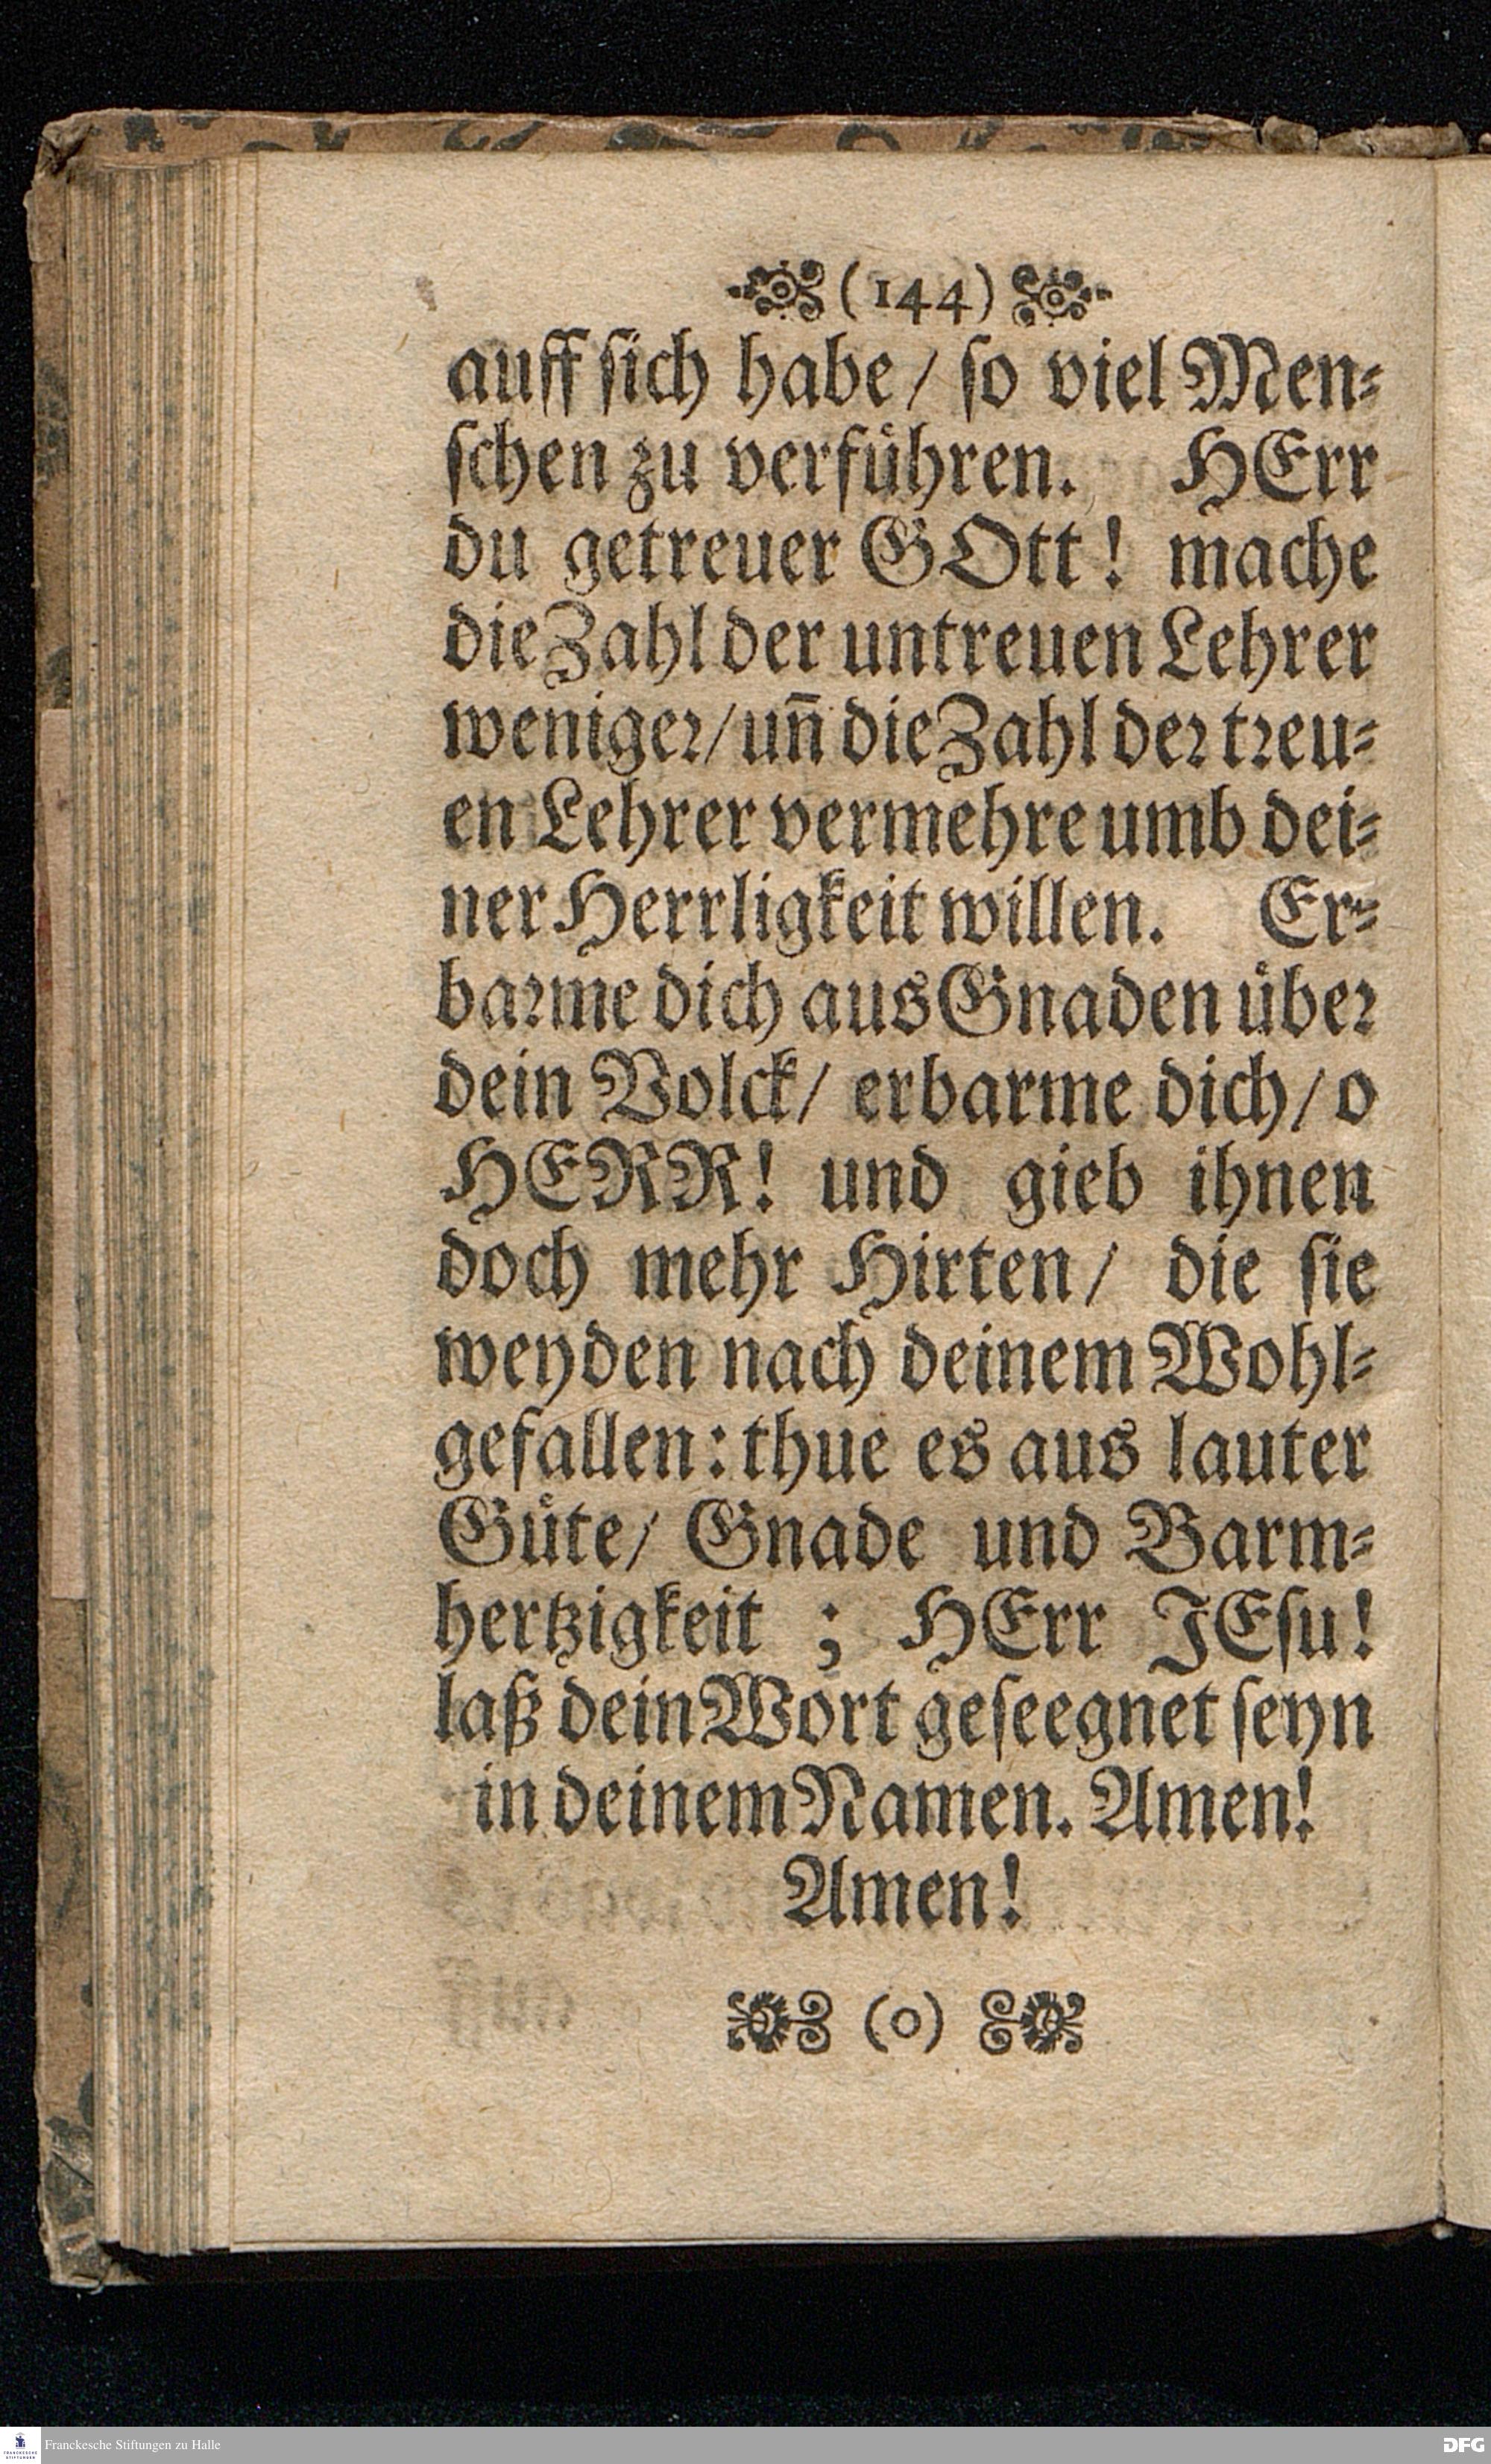 (144)
auff ſich habe / ſo viel Men⸗
ſchen zu verfuͤhren. HErr
du getreuer GOtt! mache
die Zahl der untreuen Lehrer
wenigeꝛ/ uñ die Zahl deꝛ tꝛeu⸗
en Lehrer vermehre umb dei⸗
ner Herrligkeit willen. Er⸗
baꝛme dich aus Gnaden uͤbeꝛ
dein Volck/ erbarme dich/ o
HERR! und gieb ihnen
doch mehr Hirten/ die ſie
weyden nach deinem Wohl⸗
gefallen: thue es aus lauter
Guͤte/ Gnade und Barm⸗
hertzigkeit ; HErr JEſu!
laß dein Wort geſeegnet ſeyn
in deinem Namen. Amen!
Amen!
(o)
FRANCKESCHE STIFTUNGEN
Franckesche Stiftungen zu Halle
DFG